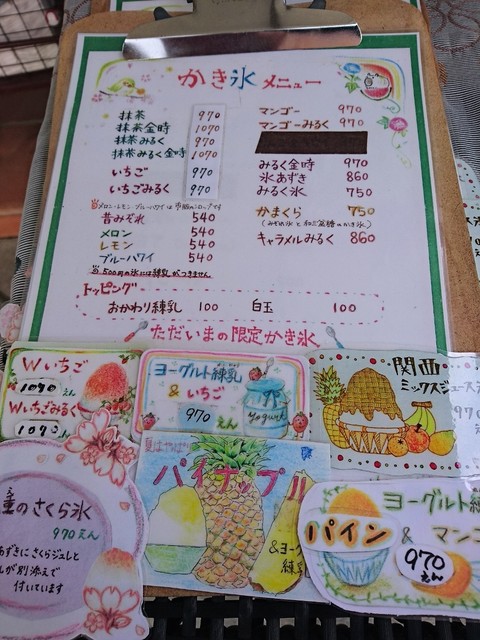 かき氷メニュー
抹茶 970
抹茶金時 1070
抹茶みるく 970
抹茶みるく金時 1070
いちご 970
いちごみるく 970
昔みぞれ 540
メロン 540
レモン 540
ブルーハワイ 540
※500円の氷には練乳がつきません
マンゴー 970
マンゴーみるく 970
みるく金時 970
氷あずき 860
みるく氷 750
かまくら 750
キャラメルみるく 860
トッピング
おかわり練乳 100 白玉 100
ただいまの限定かき氷
Wいちご
1090えん
Wいちごみるく
1090えん
ヨーグルト練乳
&いちご
970えん
Yogurt
関西
ミックスジュース
970
夏はやっぱり
パイナップル
&ヨーグ
練乳
ヨーグルト練
パイン & マンゴ
970
えん
重のさくら氷
970えん
あずきにさくらジュレと
が別添えで
付いています